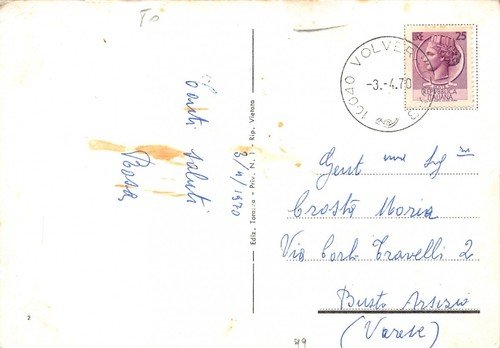 To
Tanti saluti
Rosa
3/4/1970
Ediz. Tarozzo - Priv. (N. Rip. Vietata
10040 VOLVER
-3.-4.70
25
REPUBBLICA
ITALIANA
Gent.ma Sig.na
Crosta Maria
Via Carlo Travelli 2
Busto Arsizio
(Varese)
2
49